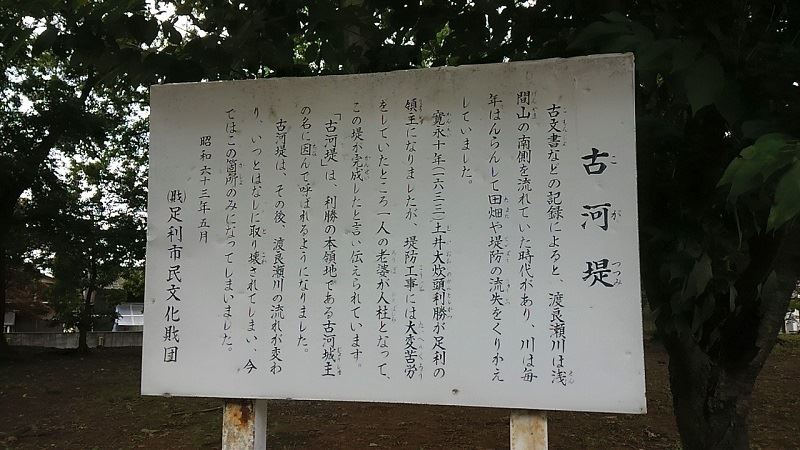 古河堤
古文書などの記録によると、渡良瀬川は浅
間山の南側を流れていた時代があり、川は毎
年はんらんして田畑や堤防の流失をくりかえ
していました。
寛永十年（一六三三）土井大炊頭利勝が足利の
領主になりましたが、堤防工事には大変苦労
をしていたところ一人の老婆が人柱となって、
この堤が完成したと言い伝えられています。
「古河堤」は、利勝の本領地である古河城主
の名に因んで呼ばれるようになりました。
古河堤は、その後、渡良瀬川の流れが変わ
り、いつとはなしに取り壊されてしまい、今
ではこの箇所のみになってしまいました。
昭和六十三年五月
㈶足利市民文化財団